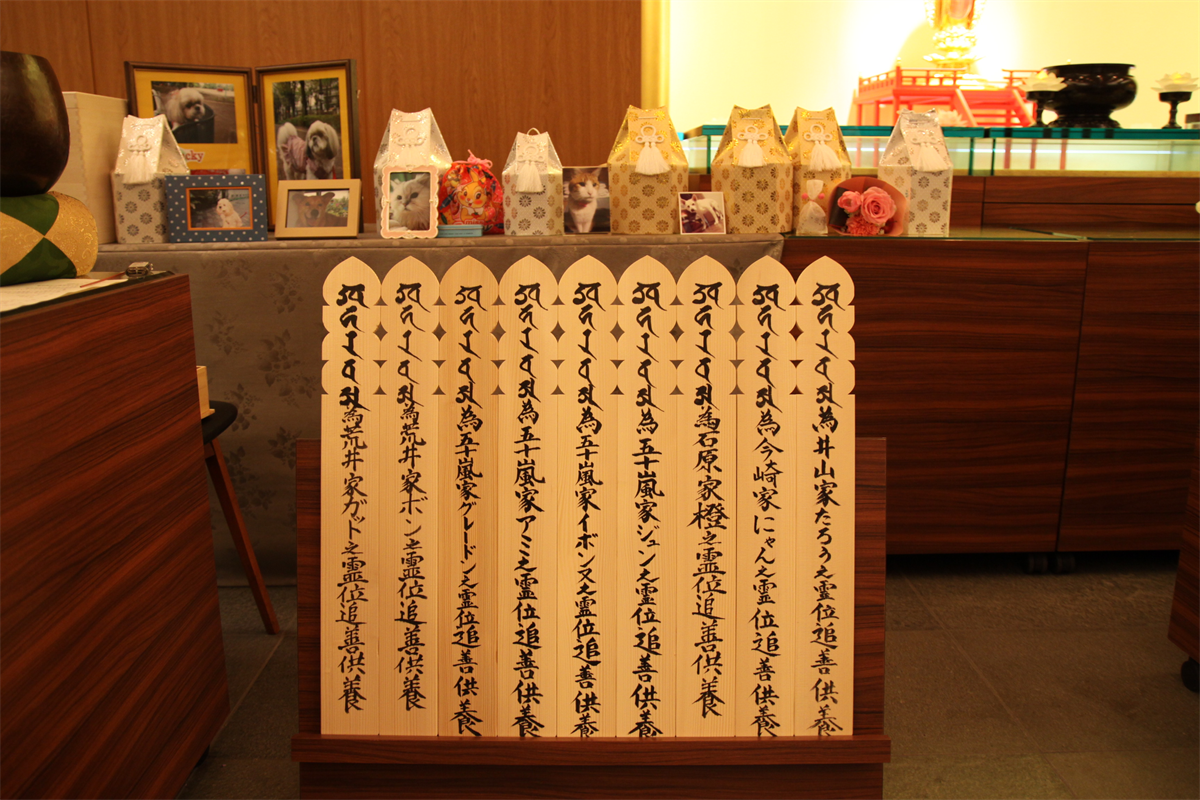 為井山家たろう之霊位追善供養
為今崎家にゃん之霊位追善供養
為石原家橙之霊位追善供養
為五十嵐家ジュン之霊位追善供養
為五十嵐家イボンヌ之霊位追善供養
為五十嵐家アミ之霊位追善供養
為五十嵐家グレードン之霊位追善供養
為荒井家ボン之霊位追善供養
為荒井家ガット之霊位追善供養